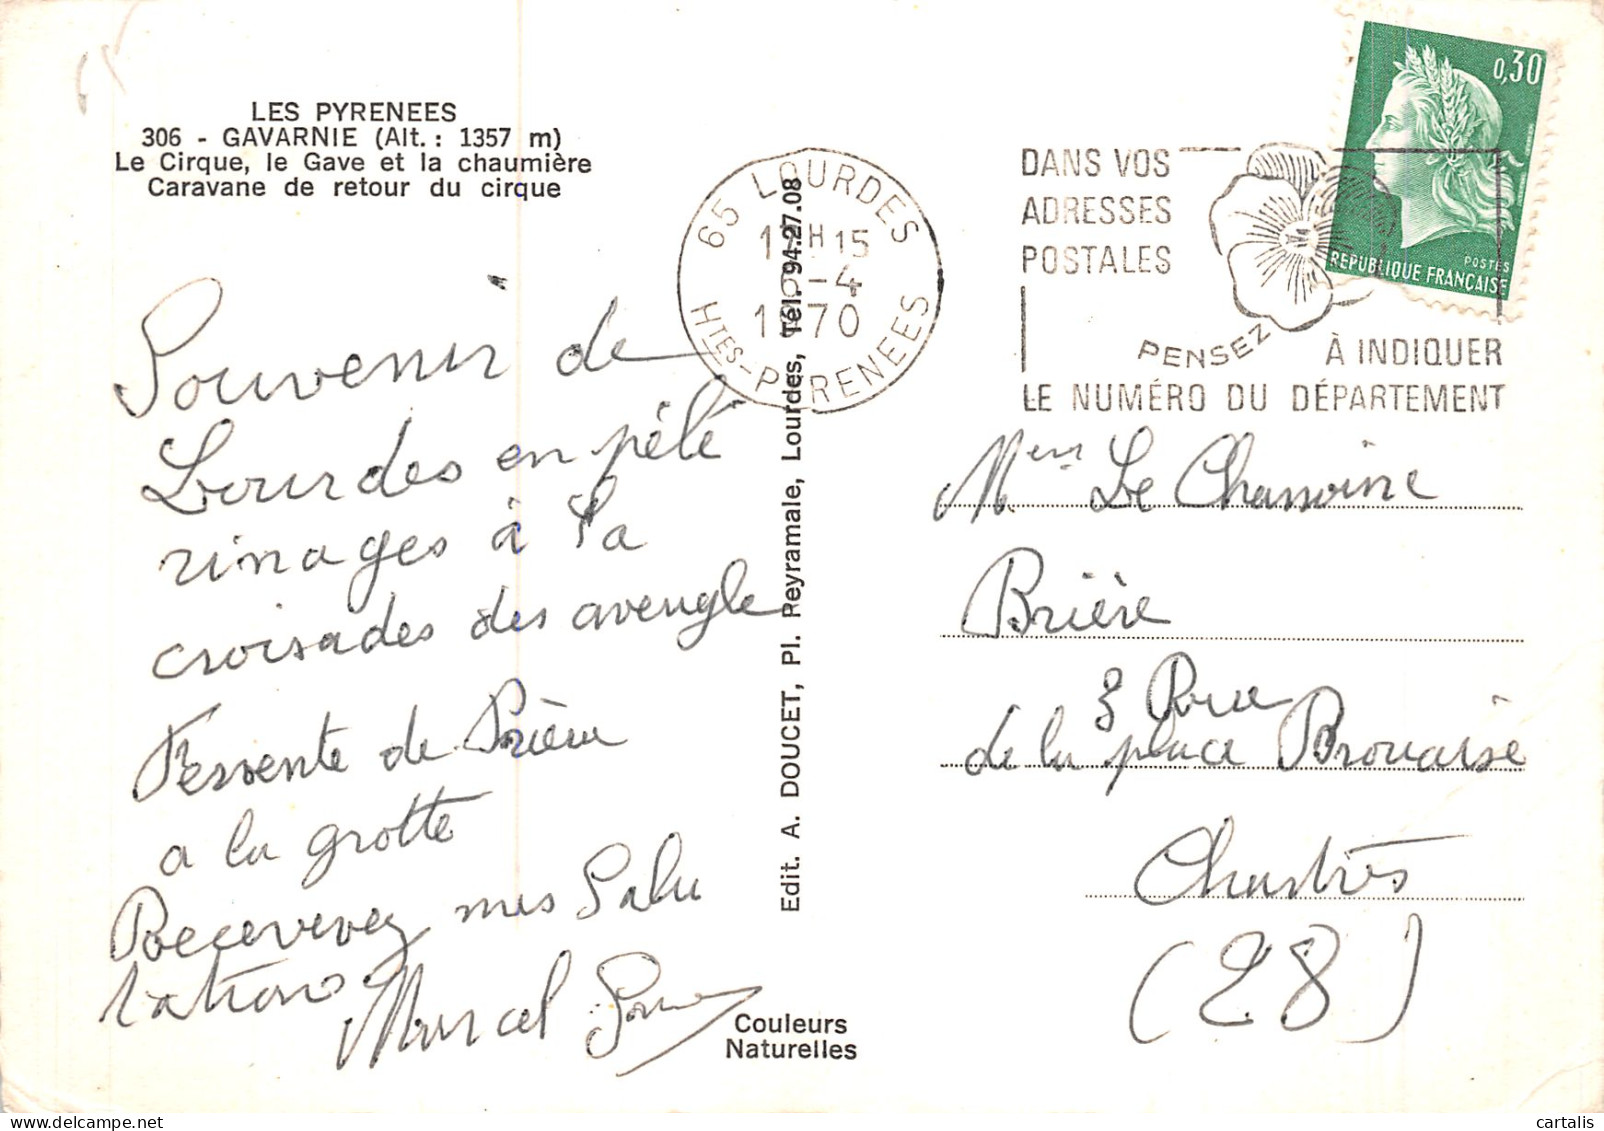 LES PYRENEES
306 - GAVARNIE (Alt. : 1357 m)
Le Cirque, le Gave et la chaumière
Caravane de retour du cirque
Souvenir de
Lourdes en péle
rinages à la
croisades des aveugle
Fervente de Prière
a la grotte
Recevevez mes Salu
tations
Marcel
Edit. A. DOUCET, Pl. Peyramale, Lourdes, Tél. 94.27.08
Couleurs
Naturelles
65 LOURDES
15
-4
1970
HTES-PYRENEES
DANS VOS
ADRESSES
POSTALES
PENSEZ
À INDIQUER
LE NUMÉRO DU DÉPARTEMENT
0,30
POSTES
REPUBLIQUE FRANÇAISE
Le Chanoine
Brière
de la place
Chartres
(28)
cartalis